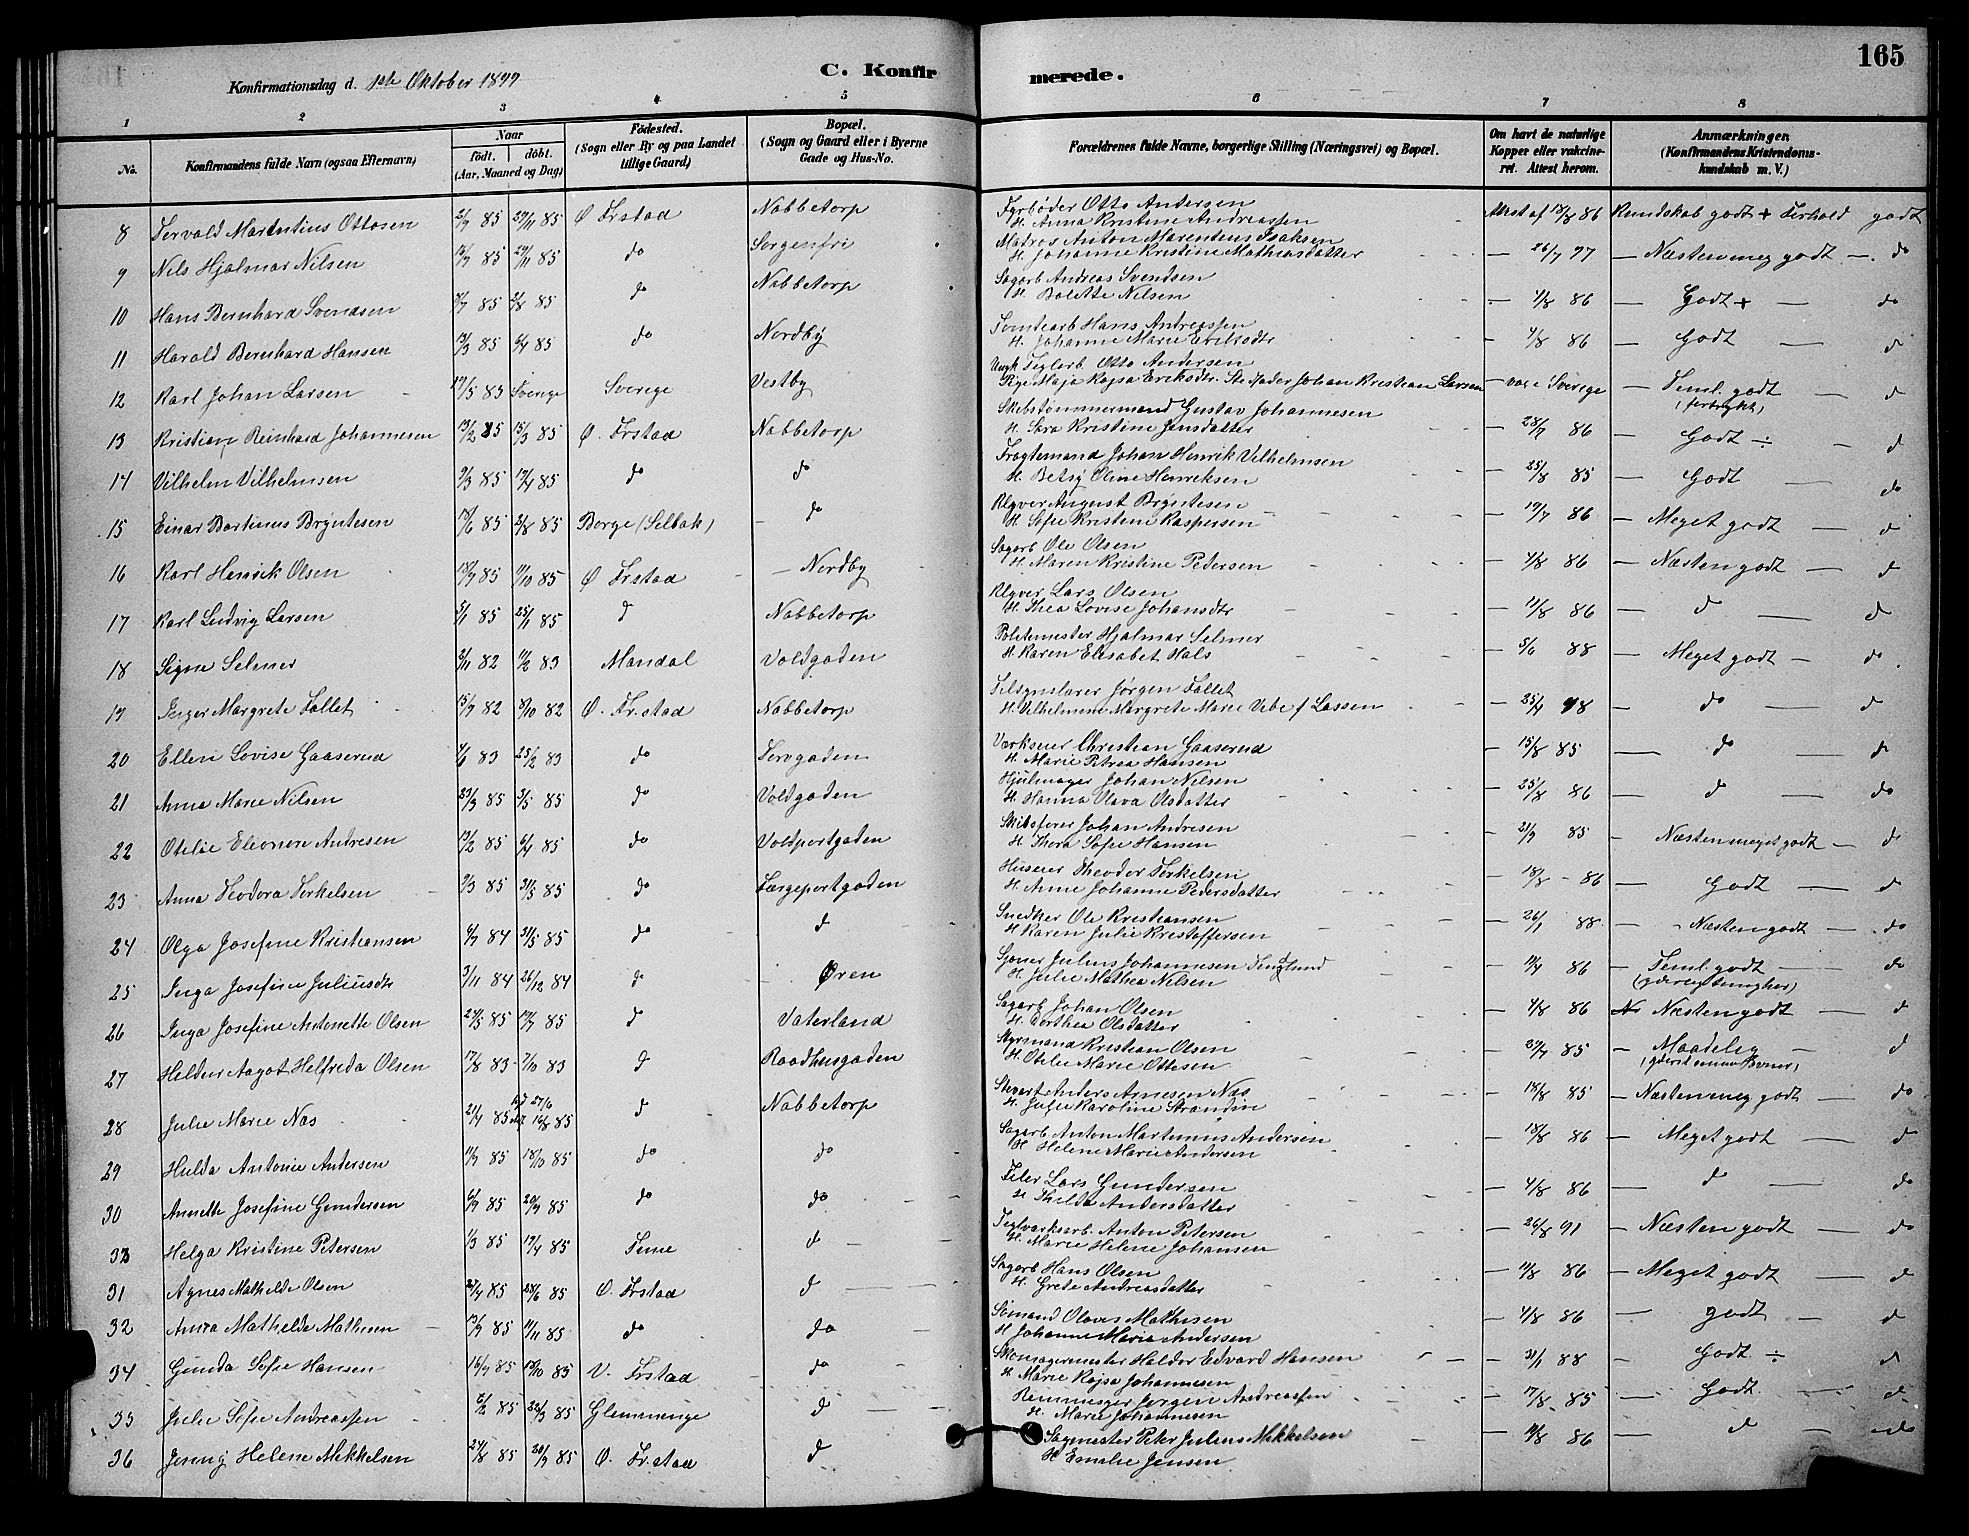 165
Konfirmationsdag d. 1ste Oktober 1899
C. Konfirmerede.
1 2 3 4 5 6 7 8
No.
Konfirmandens fulde Navn (ogsaa Efternavn)
Naar
født. døbt.
(Aar, Maaned og Dag)
Fødested.
(Sogn eller By og paa Landet
tillige Gaard)
Bopæl.
(Sogn og Gaard eller i Byerne
Gade og Hus-No.
Forældrenes fulde Navne, borgerlige Stilling (Næringsvei) og Bopæl.
Om havt de naturlige
Kopper eller vakcine-
ret. Attest herom.
Anmærkninger.
(Konfirmandens Kristendoms-
kundskab m. V.)
8 Torvald Martntius Ottosen 2/9 85 29/11 85 Ø Frstad Nabbetorp Fyrbøder Otto Andersen Attest af 13/8 86 Kundskab godt + Forhold godt
H. Anna Kristine Andreassen
9 Nils Hjalmar Nilsen 85 29/11 85 do Sorgenfri Matros Anton Marentius Isaksen — 26/7 97 — Næsten meg godt — do
H. Johanne Kristine Mathiasdatter
10 Hans Bernhard Svendsen 85 2/8 85 do Nabbetorp Sagarb Andreas Svendsen — 4/8 86 — Godt + — do
H. Bolette Nilsen
11 Harald Bernhard Hansen 13/3 85 6/4 85 do Nordby Tomtearb Hans Andreassen — 4/8 86 — Godt — d
H. Johanne Marie Eriksdtr
12 Karl Johan Larsen 19/5 85 Sverige Sverige Vestby Ungk Teglarb Otto Andersen
Pige Maja Kajsa Eriksdtr. Stedfader Johan Kristian Larsen — vac i Sverige — Teml. godt — d
13 Kristian Reinhard Johannesen 13/2 85 15/3 85 Ø. Frstad Nabbetorp Skibstømmermand Gustav Johannesen — 28/7 86 — Godt ÷ — d
H. Sara Kristine Jensdatter
14 Vilhelm Vilhelmsen 9/3 85 19/4 85 do do Fragtemand Johan Henrik Vilhelmsen — 25/8 85 — Godt — do
H. Betsy Oline Henriksen
15 Einar Bartinius Bryntesen 15/6 85 2/8 85 Borge (Selbak) — do Algver August Bryntesen — 19/7 86 — Meget godt — d
H. Sofie Kristine Kaspersen
16 Karl Henrik Olsen 18/9 85 11/10 85 Ø Frstad — Nordby Sagarb Ole Olsen — 4/8 86 — Næsten godt — d
H. Maren Kristine Petersen
17 Karl Ludvig Larsen 5/1 85 25/1 85 d Nabbetorp Algver Lars Olsen — 11/8 86 — d — d
H. Thea Lovise Johansdtr
18 Signe Selmer 2/11 82 11/2 83 Mandal Voldgaden Politemester Hjalmar Selmer — 5/6 88 — Meget godt — do
H. Karen Elisabet Hals
19 Inger Margrete Follet 15/9 82 8/10 82 Ø. Fr.stad Nabbetorp Jørgen Follet — 25/4 98 — do — d
H. Vilhelmine Margrete Marie Vibe f Lassen
20 Ellen Lovise Gaaserud 83 25/2 83 do Torvgaden Værkseier Christian Gaaserud — 15/8 85 — do — d
H. Marie Petrea Hansen
21 Anna Marie Nilsen 29/3 85 3/5 85 do Voldgaden Hjulmager Johan Nilsen — 25/8 86 — d — do
H. Hanna Olava Olsdatter
22 Otilie Eleonore Andresen 13/2 85 6/4 85 do Voldportgaden Skibsfører Johan Andresen — 21/9 85 — Næsten meget godt — d
H Thora Sofie Hansen
23 Anna Teodora Terkelsen 9/3 85 31/5 85 do Færgeportgaden Huseier Theodor Terkelsen — 18/8 - 86 — Godt — d
H. Anne Johanne Pedersdatter
24 Olga Josefine Kristiansen 6/7 84 31/5 85 do d Snedker Ole Kristiansen — 26/1 88 — Næsten godt — do
H Karen Julie Kristoffersen
25 Inga Josefine Juliusdtr 3/11 84 26/12 84 d Øren Julius Johannesen — 19/4 86 — Teml. godt — do
H. Julie Mathea Nilsen
26 Inga Josefine Antonette Olsen 29/5 85 19/7 85 d Vaterland Sagarb Johan Olsen — 4/8 86 — Næsten godt — d
H. Dorthea Olsdatter
27 Heldur Aagot Helfrida Olsen 17/8 83 7/10 83 d Raadhusgaden Styrmand Kristian Olsen — 29/7 85 — Maadelig — d
H. Otilie Marie Ottesen
28 Julie Marie Næs 21/4 85 hjd 27/6 16/8 85 d Nabbetorp Stuert Anders Arnesen Næs — 18/8 85 — Næsten meg godt — do
H. Julie Karoline Strandin
29 Hulda Antonie Andersen 11/9 85 18/10 85 do do Sagarb Anton Martinius Andersen — 18/8 86 — Meget godt — d
H Helene Marie Andersen
30 Annette Josefine Gundersen 6/9 85 20/9 85 do do Filer Lars Gundersen — 4/8 86 — d — do
H Thilda Andersdatter
33 Helga Kristine Petersen 1/3 85 12/4 85 Tune d Teglværksarb. Anton Petersen — 26/8 91 — Næsten godt — do
H. Marie Helene Johansen
31 Agnes Mathilde Olsen 27/4 85 28/6 85 Ø. Frstad d Sagarb Hans Olsen — 11/8 86 — Meget godt — d
H. Grete Andreasdatter
32 Anna Mathilde Mathisen 13/9 85 11/11 85 do do Sømand Olaves Mathisen — 4/8 86 — godt — d
H Johanne Marie Andersen
34 Gunda Sofie Hansen 16/9 85 18/10 85 V. Frstad do Skomagermester Haldor Edvard Hansen — 31/1 88 — Godt ÷ — d
H Marie Kajsa Johannesen
35 Julie Sofie Andreassen 6/2 85 22/3 85 Glemminge d Jørgen Andreassen — 17/8 - 85 — Godt — d
H. Marie Johannesen
36 Jenny Helene Mikkelsen 24/8 85 20/9 85 Ø. Fr.stad d Sagmester Peter Julius Mikkelsen — 11/8 86 — d — do
H Emilie Jensen